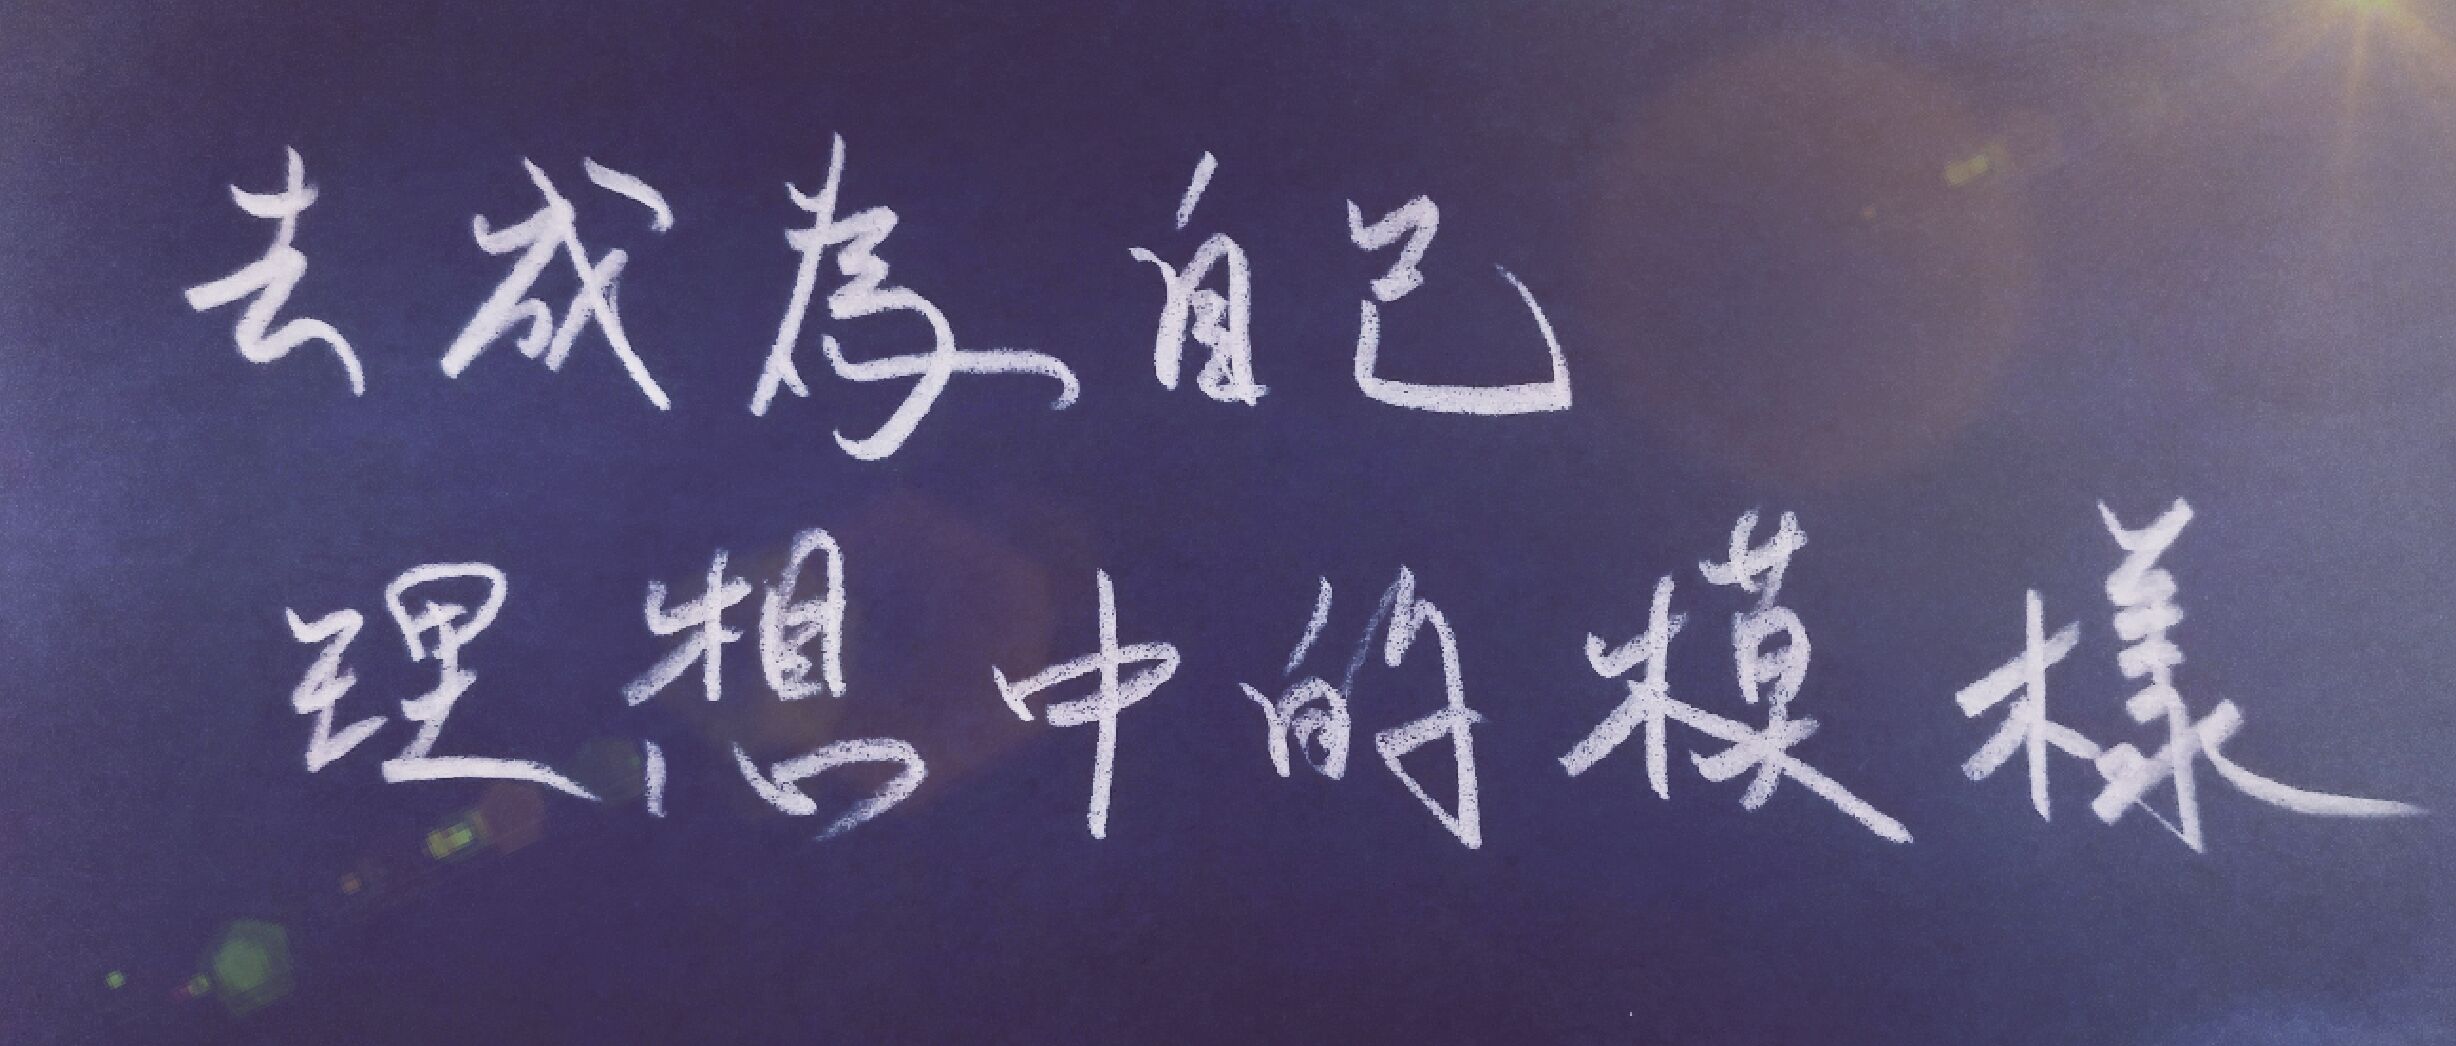 去成為自己
理想中的模樣